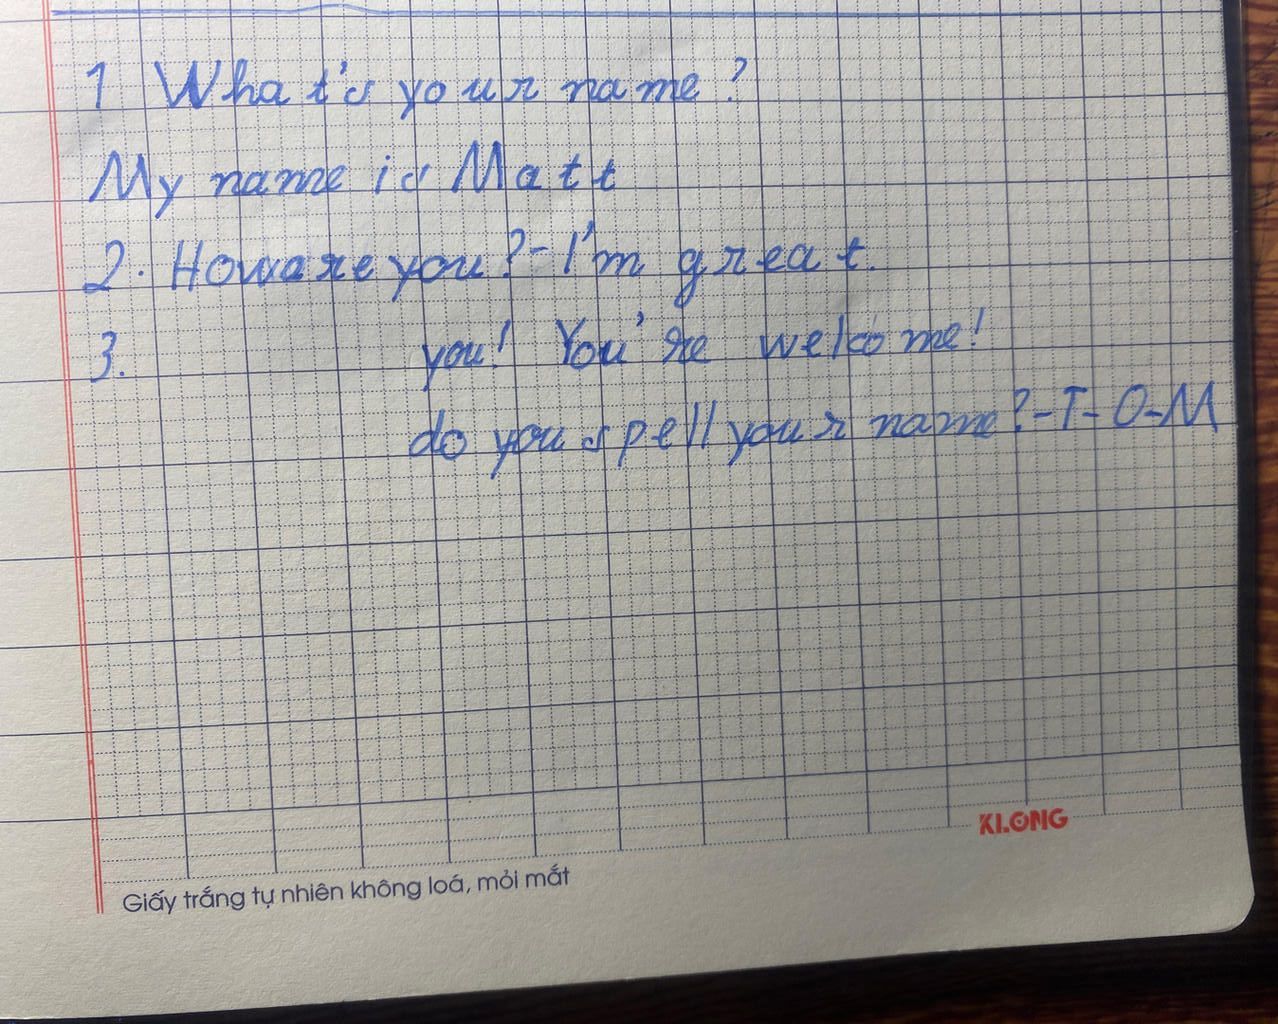 1 What's your name?
My name is Matt
2. How are you? - I'm great.
3. you! You're welcome!
do you spell your name? - T - O - M
KLONG
Giấy trắng tự nhiên không loá, mỏi mắt